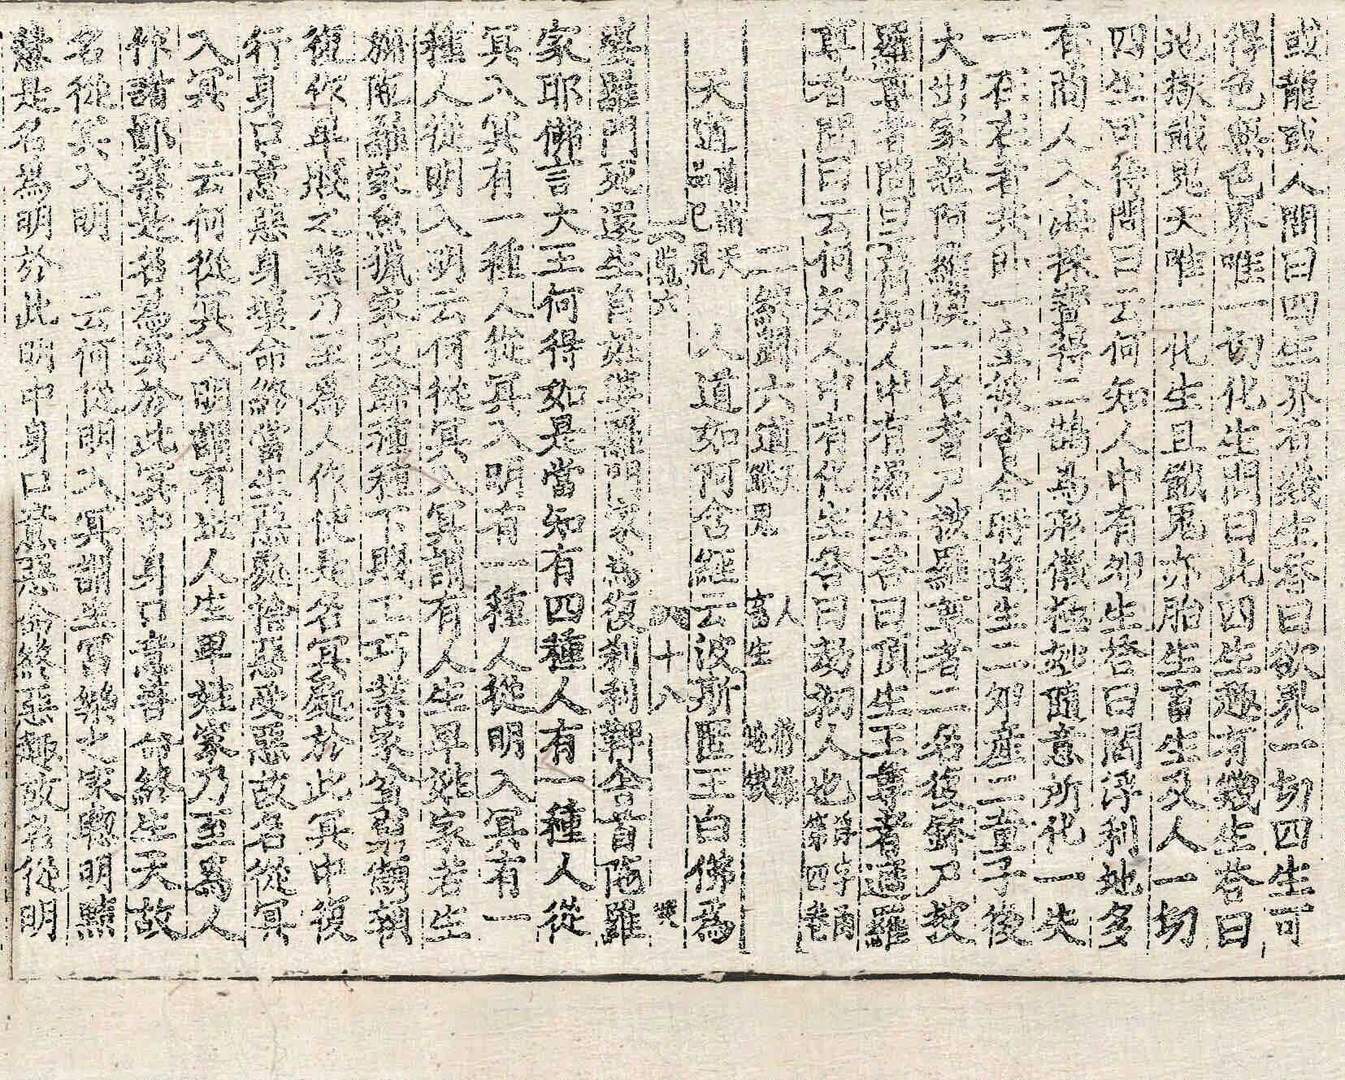 或龍或人問曰四生界有幾生答曰欲界一切四生可
得色無色界唯一切化生問曰此四生趣有幾生答曰
地獄餓鬼天唯一化生且餓鬼亦胎生畜生及人一切
四生可得問曰云何知人中有卵生答曰閻浮利地多
有商人入海採寶得二鵠為形儀極妙隨意所化一失
一在在者共臥一室彼會合時遂生二卵產二童子後
大出家證阿羅漢一名耆尸披羅尊者二名優鉢尸披
羅尊者問曰云何知人中有濕生答曰頂生王尊者遮羅
尊者問曰云何知人中有化生答曰劫初人也
二殊闢六道餓鬼 人畜生 地獄
天道品已見 諸天 人道如阿含經云波斯匿王白佛為
六 八十八
婆羅門死還生自姓婆羅門家為復剎利鞞舍首陀羅
家耶佛言大王何得如是當知有四種人有一種人從
冥入冥有一種人從冥入明有一種人從明入冥有一
種人從明入明云何從冥入冥謂有人生卑姓家若生
旃陀羅家魚獵家及餘種種下賤工巧業家貧窮顦顇
復作卑賤之業乃至為人作使是名冥處於此冥中復
行身口意惡身壞命終當生惡處惡受惡故名從冥
入冥 云何從冥入明謂有世人生卑姓家乃至為人
作諸鄙業是名為冥於此冥中身口意善命終生天故
名從冥入明 云何從明入冥謂生富樂之家聰明黠
慧是名為明於此明中身口意惡命終惡趣故名從明